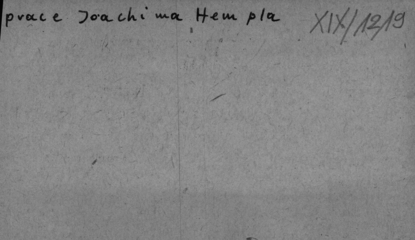 prace Joachima Hempla XIX/1219